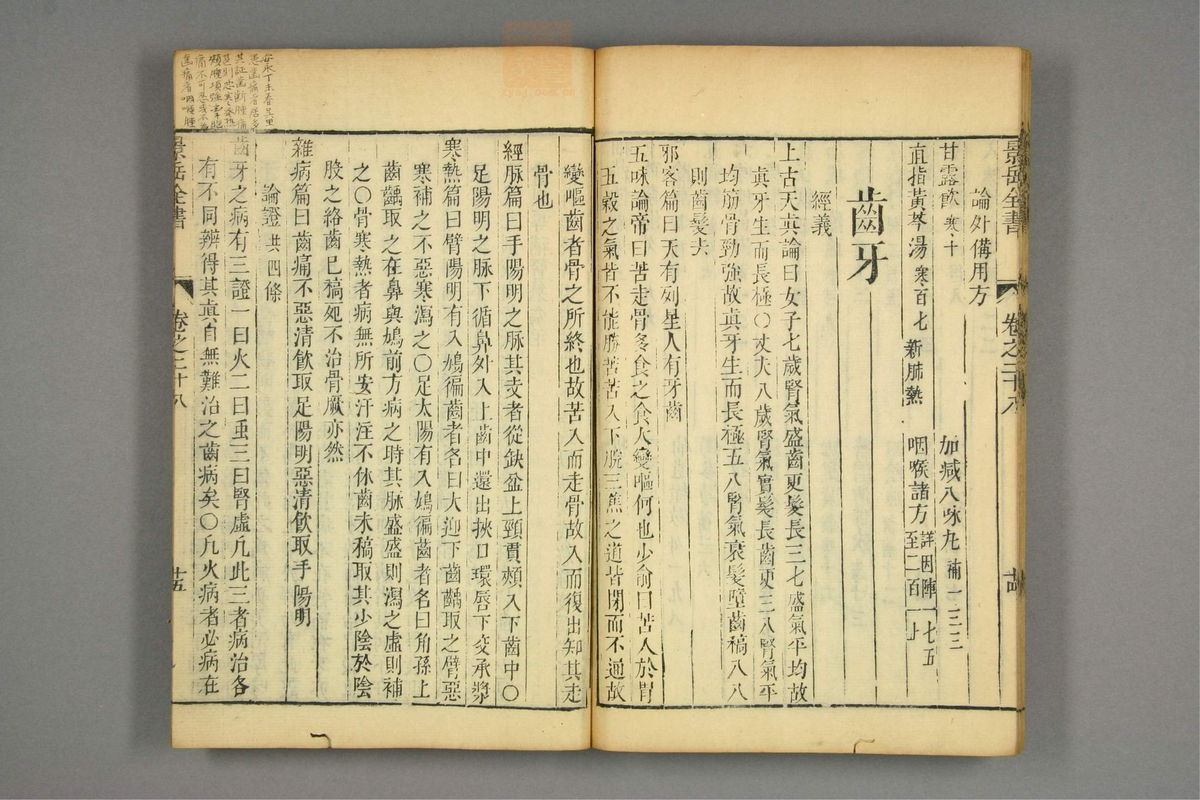 景岳全書
卷之二十八
論外備用方
甘露飲 寒十
加減八味丸 補一二三
直指黃芩湯 寒百七 新肺熱
咽喉諸方 詳因陣一七五至二百一十
齒牙
經義
上古天真論曰女子七歲腎氣盛齒更髮長三七盛氣平均故
真牙生而長極○丈夫八歲腎氣實髮長齒更三八腎氣平
均筋骨勁強故真牙生而長極五八腎氣衰髮墮齒槁八八
則齒髮去
邪客篇曰天有列星人有牙齒
五味論帝曰苦走骨多食之令人變嘔何也少俞曰苦入於胃
五穀之氣皆不能勝苦苦入下脘三焦之道皆閉而不通故
變嘔齒者骨之所終也故苦入而走骨故入而復出知其走
骨也
經脉篇曰手陽明之脉其支者從缺盆上頸貫頰入下齒中○
足陽明之脉下循鼻外入上齒中還出挾口環唇下交承漿
寒熱篇曰臂陽明有入鳩徧齒者名曰大迎下齒齲取之臂惡
寒補之不惡寒瀉之○足太陽有入鳩徧齒者名曰角孫上
齒齲取之在鼻與鳩前方病之時其脉盛盛則瀉之虛則補
之○骨寒熱者病無所安汗注不休齒未槁取其少陰於陰
股之絡齒已槁死不治骨厥亦然
雜病篇曰齒痛不惡清飲取足陽明惡清飲取手陽明
論證 共四條
齒牙之病有三證一曰火二曰虫三曰腎虛凢此三者病治各
有不同辨得其真自無難治之齒病矣○凢火病者必病在
景岳全書
卷之二十八
廿五